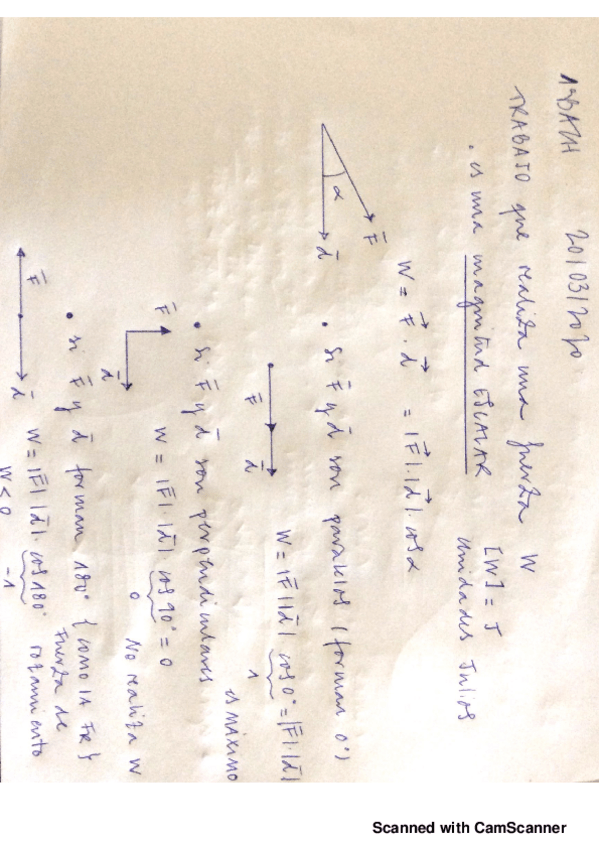 1ºBACH 20/03/2020
TRABAJO que realiza una fuerza W
. es una magnitud ESCALAR [W] = J
unidades Julios
α F̄ d̄
W = F⃗ · d⃗ = |F⃗|·|d⃗|· cos α
• Si F̄ y d̄ son paralelos (forman 0°)
F̄ d̄ W = |F̄||d̄| cos 0° = |F̄|·|d̄|
1 es MÁXIMO
• Si F̄ y d̄ son perpendiculares
F̄ d̄ W = |F̄|·|d̄| cos 90° = 0
0 No realiza W
• si F̄ y d̄ forman 180° {COMO LA FR}
Fuerza de
rozamiento
F̄ d̄ W = |F̄| |d̄|· cos 180°
-1
W < 0
Scanned with CamScanner